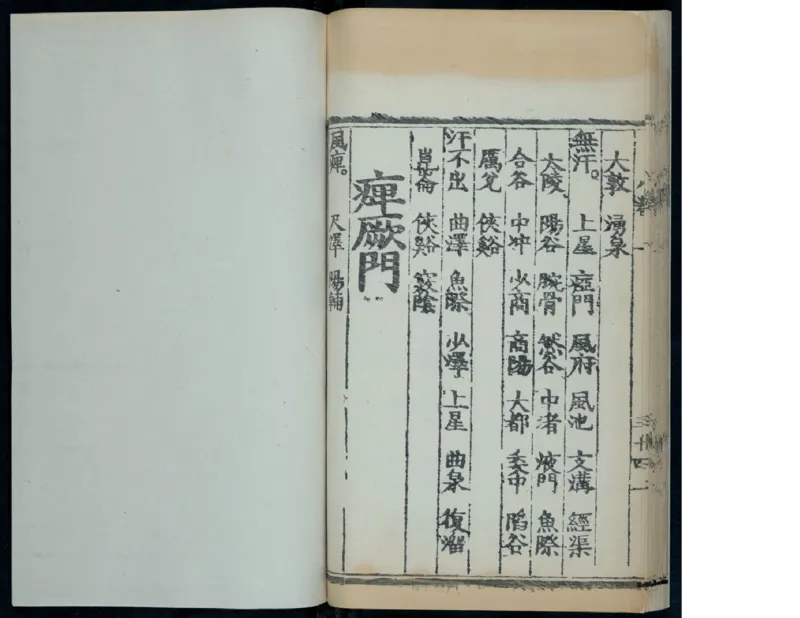 大敦 湧泉
無汗。 上星 瘂門 風府 風池 支溝 經渠
大陵 陽谷 腕骨 然谷 中渚 液門 魚際
合谷 中冲 少商 商陽 大都 委中 陷谷
厲兌 俠谿
汗不出 曲澤 魚際 少澤 上星 曲泉 復溜
崑崙 俠谿 竅陰
痺厥門
風痺。 尺澤 陽輔